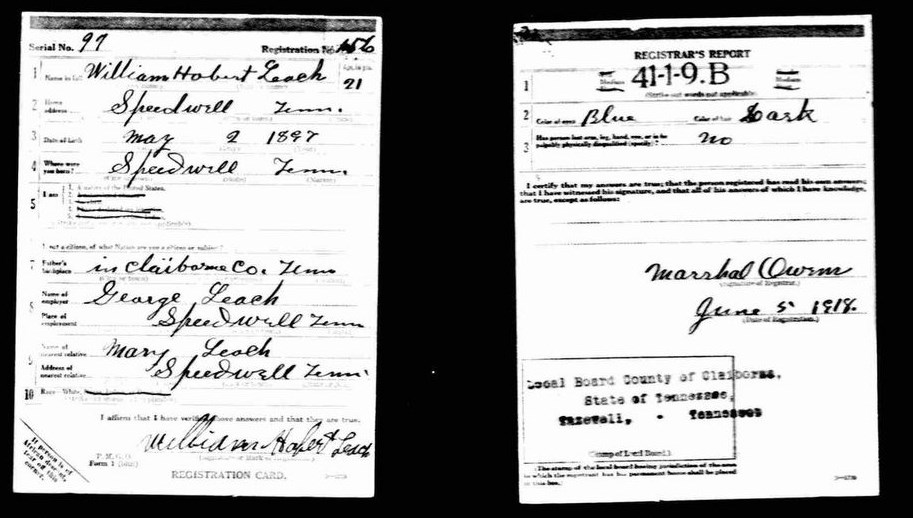 Serial No. 97 Registration No. 156
1 Name in full William Hobert Leach Age in yrs. 21
2 Home address Speedwell Tenn.
3 Date of birth May 2 1897
4 Where were you born? Speedwell Tenn.
5 I am 1. A native of the United States.
2.
3.
4.
5.
If not a citizen, of what Nation are you a citizen or subject?
7 Father's birthplace in Claiborne Co. Tenn
8 Name of employer George Leach
Place of employment Speedwell Tenn
9 Name of nearest relative Mary Leach
Address of nearest relative Speedwell Tenn.
10 Race—White,
I affirm that I have verified these answers and that they are true.
William Hobert Leach
P. M. G. O.
Form 1
REGISTRATION CARD.
If person is of African descent, tear off this corner.
REGISTRAR'S REPORT
41-1-9.B
1 Medium Medium
(Strike out words not applicable)
2 Color of eyes Blue Color of hair Dark
3 Has person lost arm, leg, hand, eye, or is he palpably physically disqualified (specify)? no
I certify that my answers are true; that the person registered has read his own answers;
that I have witnessed his signature, and that all of his answers of which I have knowledge,
are true, except as follows:
Marshal Owens
(Signature of Registrar.)
June 5 1918.
(Date of Registration.)
Local Board County of Claiborne,
State of Tennessee,
Tazewell, - Tennessee
(Stamp of Local Board.)
(The stamp of the local board having jurisdiction of the area
in which the registrant has his permanent home shall be placed
in this box.)